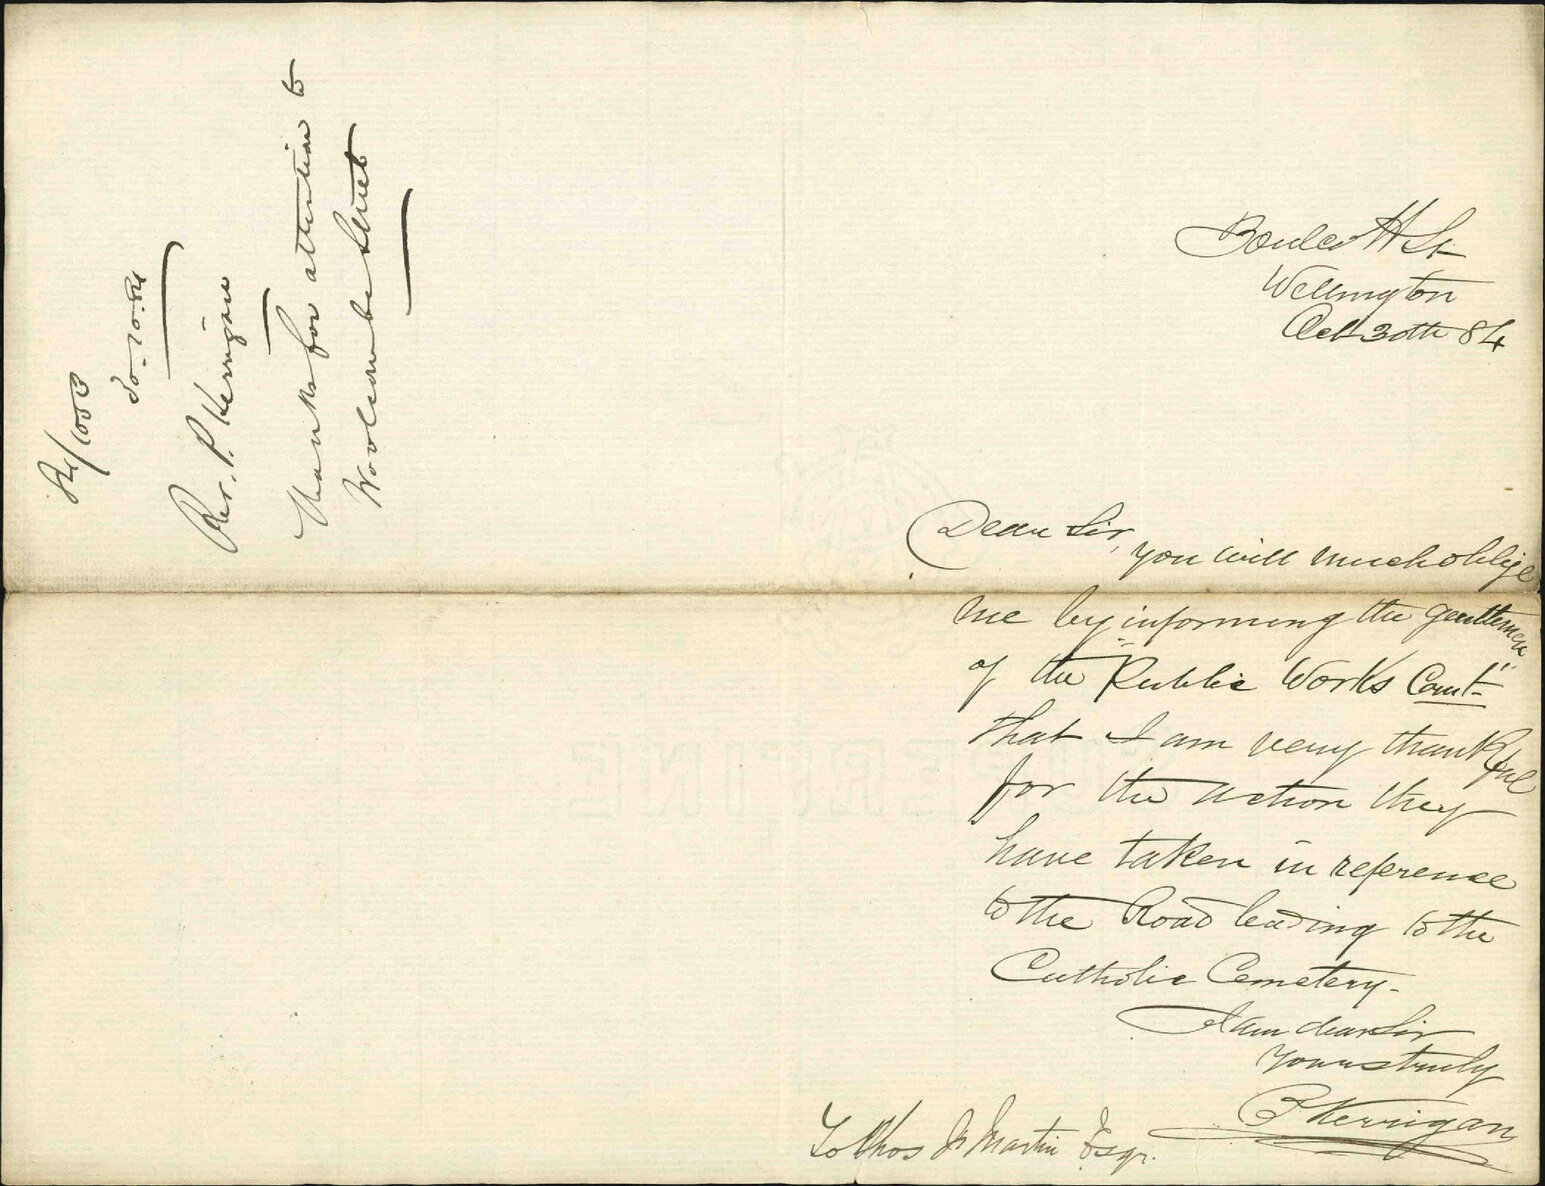 Boulcott St
Wellington
Oct 30th 84
Dear Sir,
you will much oblige
me by informing the gentlemen
of the "Public Works Comt"
that I am very thankful
for the action they
have taken in reference
to the Road leading to the
Catholic Cemetery-
I am dear Sir
yours truly
P Kerrigan
To Thos Martin Esqr.
84/1003
30.10.84
Rev. P. Kerrigan
Thanks for attention to
Woolcombe Street
SUPERFINE